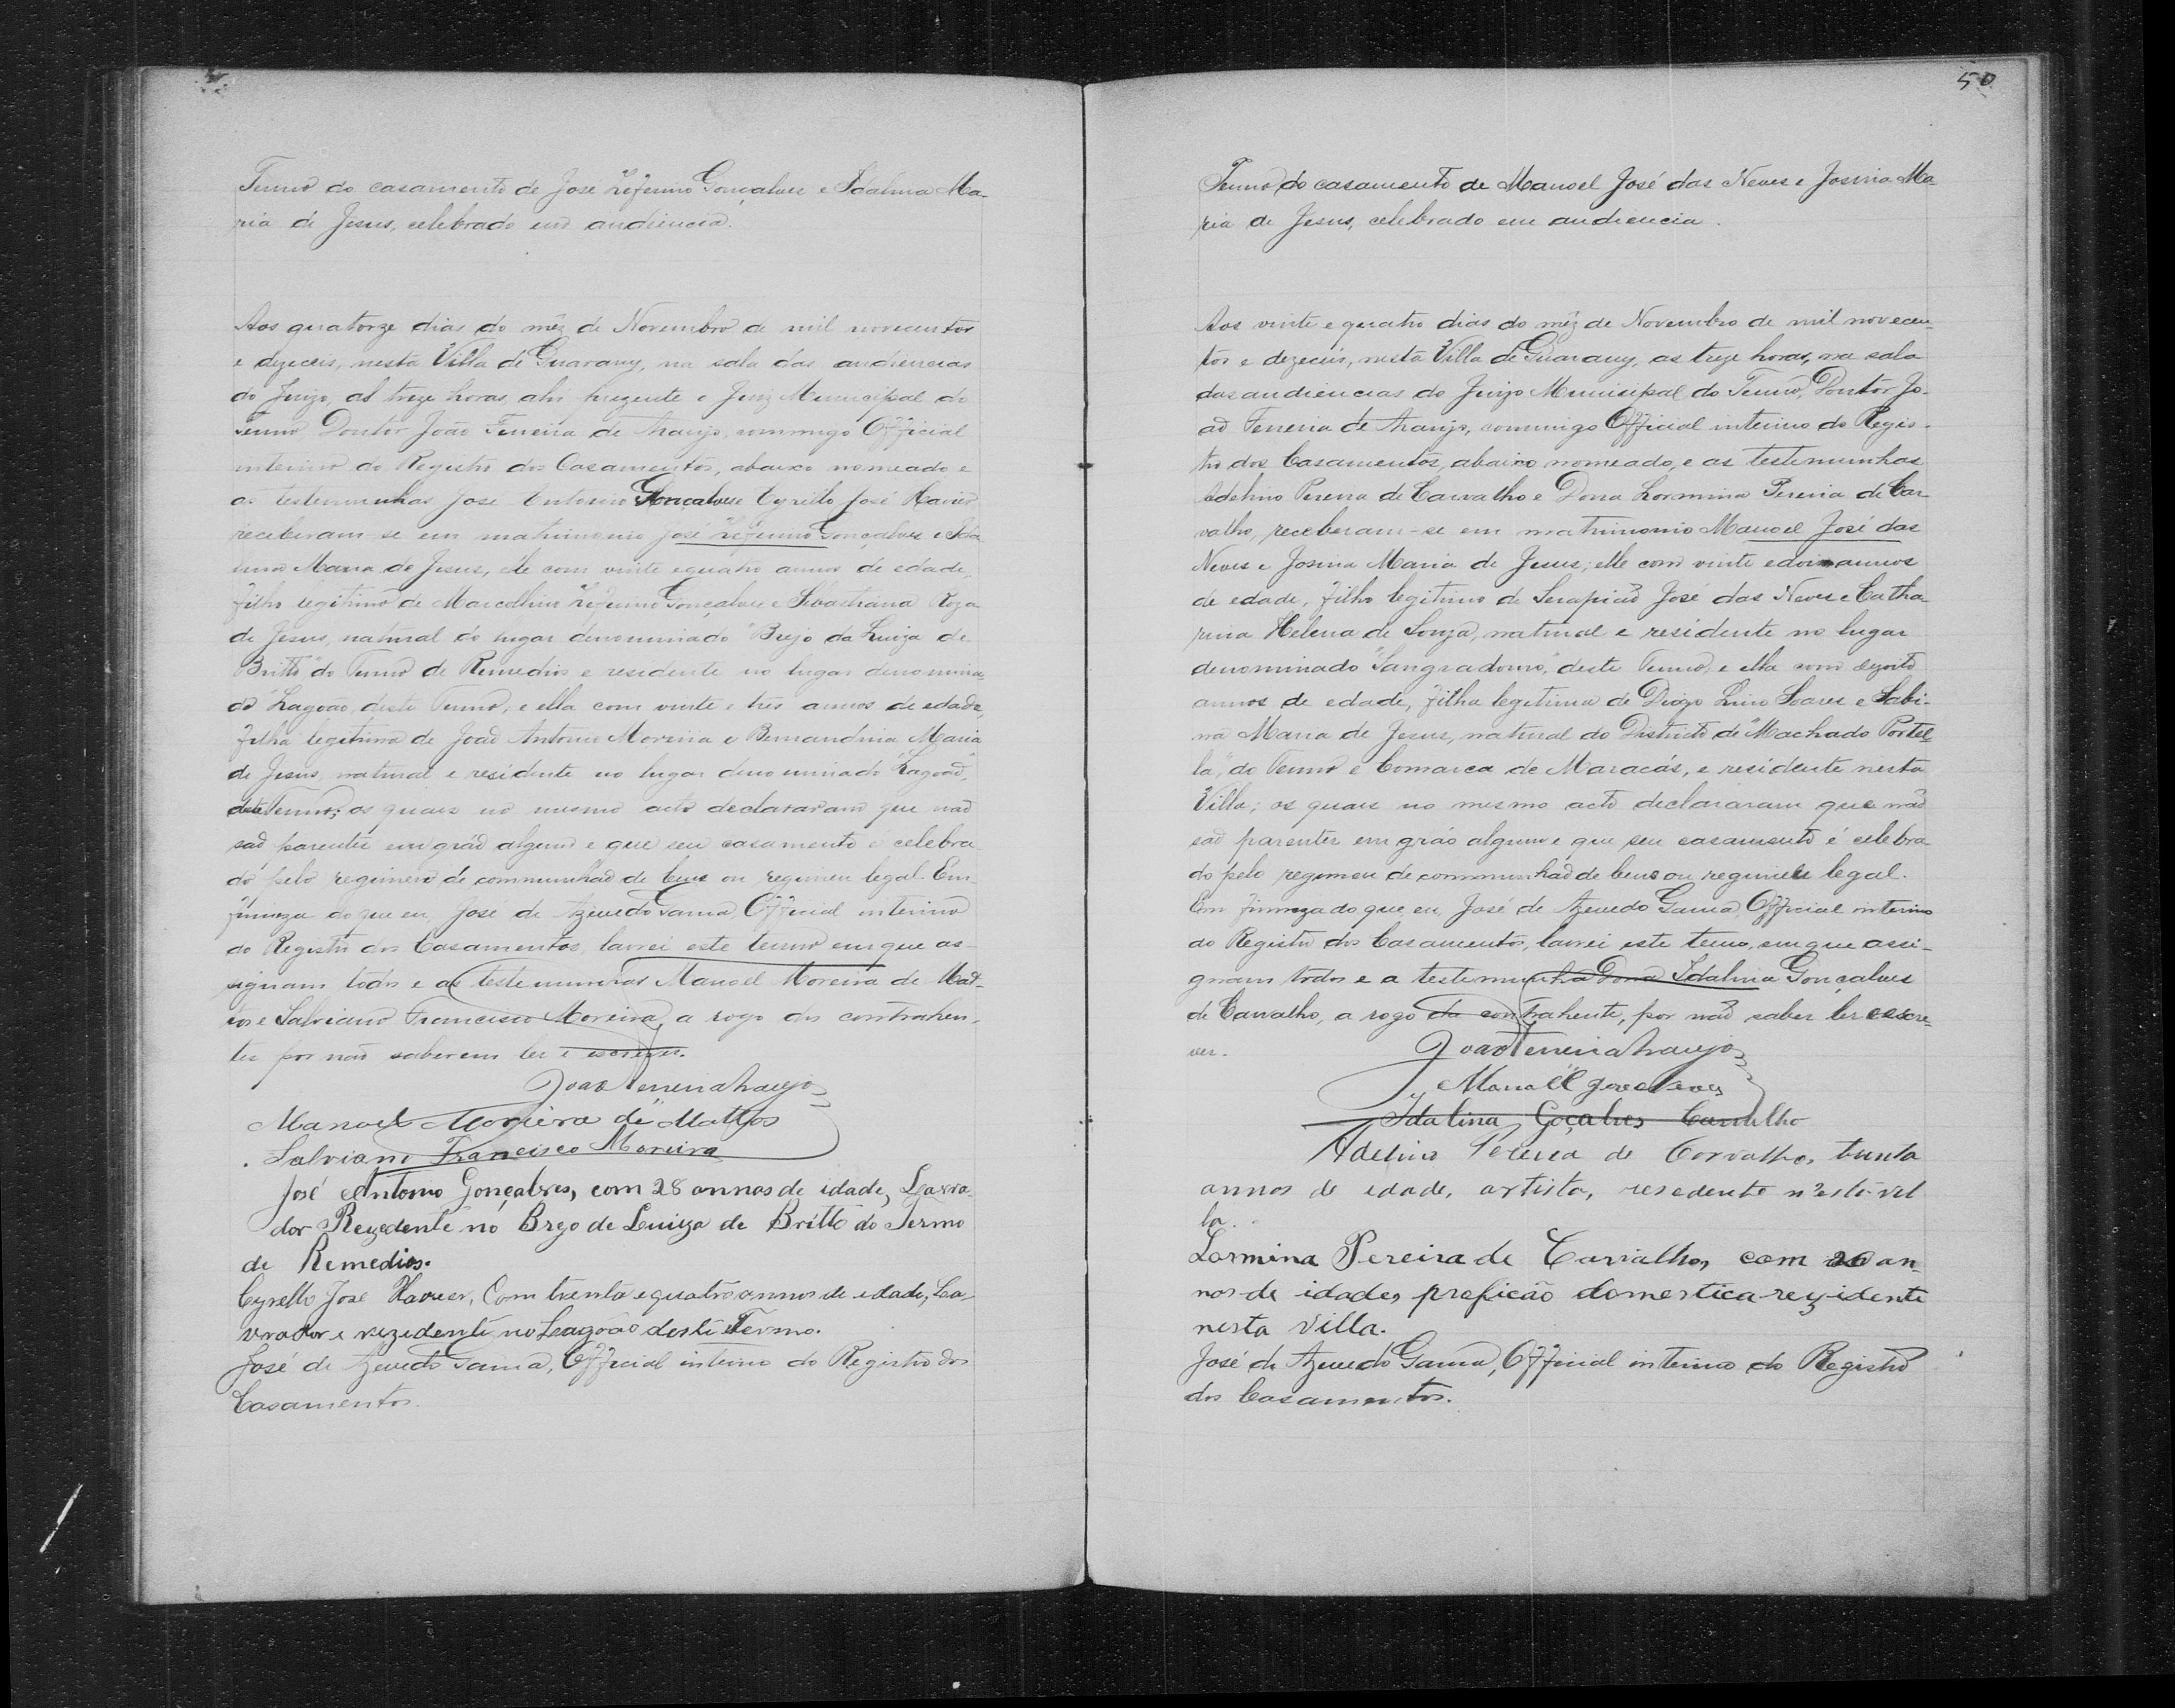 Termo do casamento de José Zeferino Gonçalves e Idalina Ma-
ria de Jesus, celebrado em audiencia.
Aos quatorze dias do mêz de Novembro de mil novecentos
e dezeceis, nesta Villa de Guarany, na sala das audiencias
do Juizo, as treze horas, ahi prezente o Juiz Municipal do
Termo Doutor João Ferreira de Araujo, commigo Official
interino do Registro dos Casamentos, abaixo nomeado e
as testemunhas José Antonio Gonçalves e Cyrillo José Xavier
receberam-se em matrimonio José Zeferino Gonçalves e Ida
lina Maria de Jesus, elle com vinte e quatro annos de edade,
filho legitimo de Marcellino Zeferino Gonçalves e Sebastiana Roza
de Jesus, natural do lugar denominado "Brejo da Luiza de
Britto" do Termo de Remedios e residente no lugar denomina-
do "Lagoão, deste Termo, e ella com vinte e tres annos de edade,
filha legitima de João Antonio Moreira e Bernardina Maria
de Jesus, natural e residente no lugar denominado "Lagoão,
deste Termo; os quaes no mesmo acto declararam que não
são parentes em gráo algum e que seu casamento é celebra
do pelo regimen de communhão de bens ou regimen legal. Em
firmeza do que eu, José de Azevedo Gama, Official interino
do Registro dos Casamentos, lavrei este termo em que as-
signam todos e as testemunhas Manoel Moreira de Mat-
tos e Salviano Francisco Moreira, a rogo dos contrahen-
tes por não saberem ler e escrever.
João Ferreira Araujo
Manoel Moreira de Mattos
Salviano Francisco Moreira
José Antonio Gonçalves, com 28 annos de idade, Lavra-
dor Rezedente no Brejo de Luiza de Britto do Termo
de Remedios.
Cyrillo José Xavier, Com trenta e quatro annos de idade, La-
vrador e rezidente no Lagoão deste Termo.
José de Azevedo Gama, Official interino do Registro dos
Casamentos.
50
Termo do casamento de Manoel José das Neves e Josina Ma-
ria de Jesus, celebrado em audiencia.
Aos vinte e quatro dias do mêz de Novembro de mil novecen-
tos e dezeceis, nesta Villa de Guarany, as treze horas, na sala
das audiencias do Juizo Municipal do Termo, Doutor Jo-
ão Ferreira de Araujo, commigo Official interino do Regis-
tro dos Casamentos, abaixo nomeado, e as testemunhas
Adelino Pereira de Carvalho e Dona Lormina Pereira de Car
valho, receberam-se em matrimonio Manoel José das
Neves e Josina Maria de Jesus; elle com vinte e dois annos
de edade, filho legitimo de Serapião José das Neves e Catha-
rina Helena de Souza, natural e residente no lugar
denominado "Sangradouro," deste Termo, e ella com dezoito
annos de edade, filha legitima de Diogo Lino Soares e Sabi-
na Maria de Jesus, natural do Districto de "Machado Portel-
la," do Termo e Comarca de Maracás, e residente nesta
Villa; os quaes no mesmo acto declararam que não
são parentes em gráo algum e que seu casamento é celebra-
do pelo regimen de communhão de bens ou regimen legal.
Em firmeza do que, eu, José de Azevedo Gama, Official interino
do Registro dos Casamentos, lavrei este termo, em que assi-
gnam todos e a testemunha Dona Idalina Gonçalves
de Carvalho, a rogo da contrahente, por não saber ler e escre-
ver.
João Ferreira Araujo
Manoel José das Neves
Idalina Goçalves Carvalho
Adelino Pereira de Carvalho, trinta
annos de edade, artista, resedente n'esta vil
la.
Lormina Pereira de Carvalho, com 20 an-
nos de idade, proficão domestica rezidente
nesta villa.
José de Azevedo Gama, Official interino do Registro
dos Casamentos.